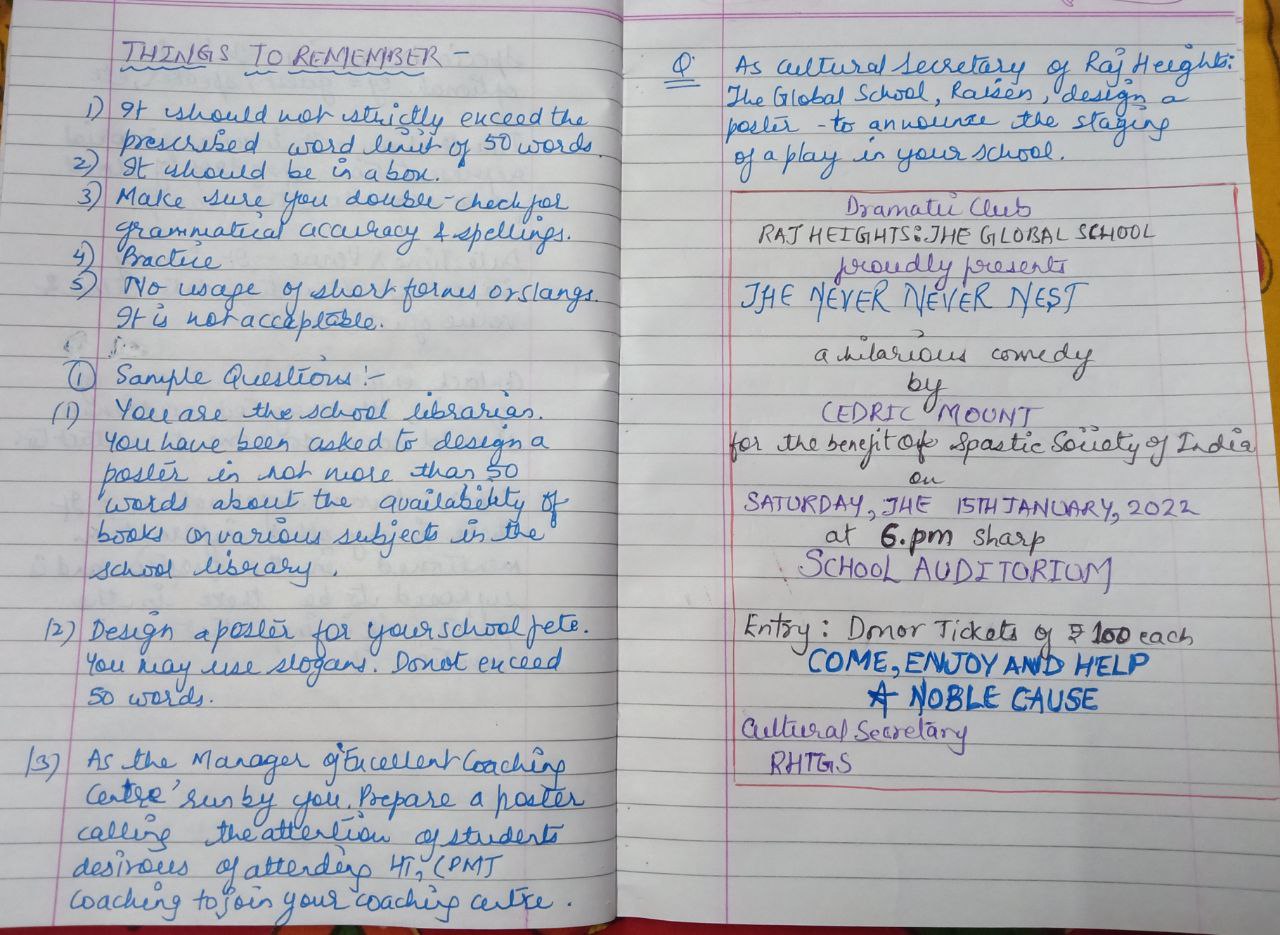 THINGS TO REMEMBER -
1) It should not strictly exceed the
prescribed word limit of 50 words.
2) It should be in a box.
3) Make sure you double-check for
grammatical accuracy & spellings.
4) Practice
5) No usage of short forms or slangs.
It is not acceptable.
① Sample Questions :-
(1) You are the school librarian.
You have been asked to design a
poster in not more than 50
words about the availability of
books on various subjects in the
school library.
(2) Design a poster for your school fete.
You may use slogans. Donot exceed
50 words.
(3) As the Manager of 'Excellent Coaching
Centre' run by you. Prepare a poster
calling the attention of students
desirous of attending CPMT
Coaching to join your coaching centre.
Q. As cultural secretary of Raj Heights:
The Global School, Raisen, design a
poster - to announce the staging
of a play in your school.
Dramatic Club
RAJ HEIGHTS: THE GLOBAL SCHOOL
proudly presents
THE NEVER NEVER NEST
a hilarious comedy
by
CEDRIC MOUNT
for the benefit of Spastic Society of India
on
SATURDAY, THE 15TH JANUARY, 2022
at 6.pm sharp
SCHOOL AUDITORIUM
Entry: Donor Tickets of ₹ 100 each
COME, ENJOY AND HELP
A NOBLE CAUSE
Cultural Secretary
RHTGS